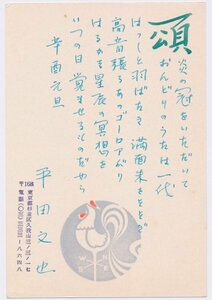 頌
炎の冠をいただいて
おんどりのうたは一代
はっしと羽ばたき 満面朱をそそぎ
高音張るあのゴーロアぶり
はるかる星辰の冥想を
いつの日覚ませるものだやら
辛酉元旦
平田文也
〒168
東京都杉並区久我山
電話
N
W
E
S